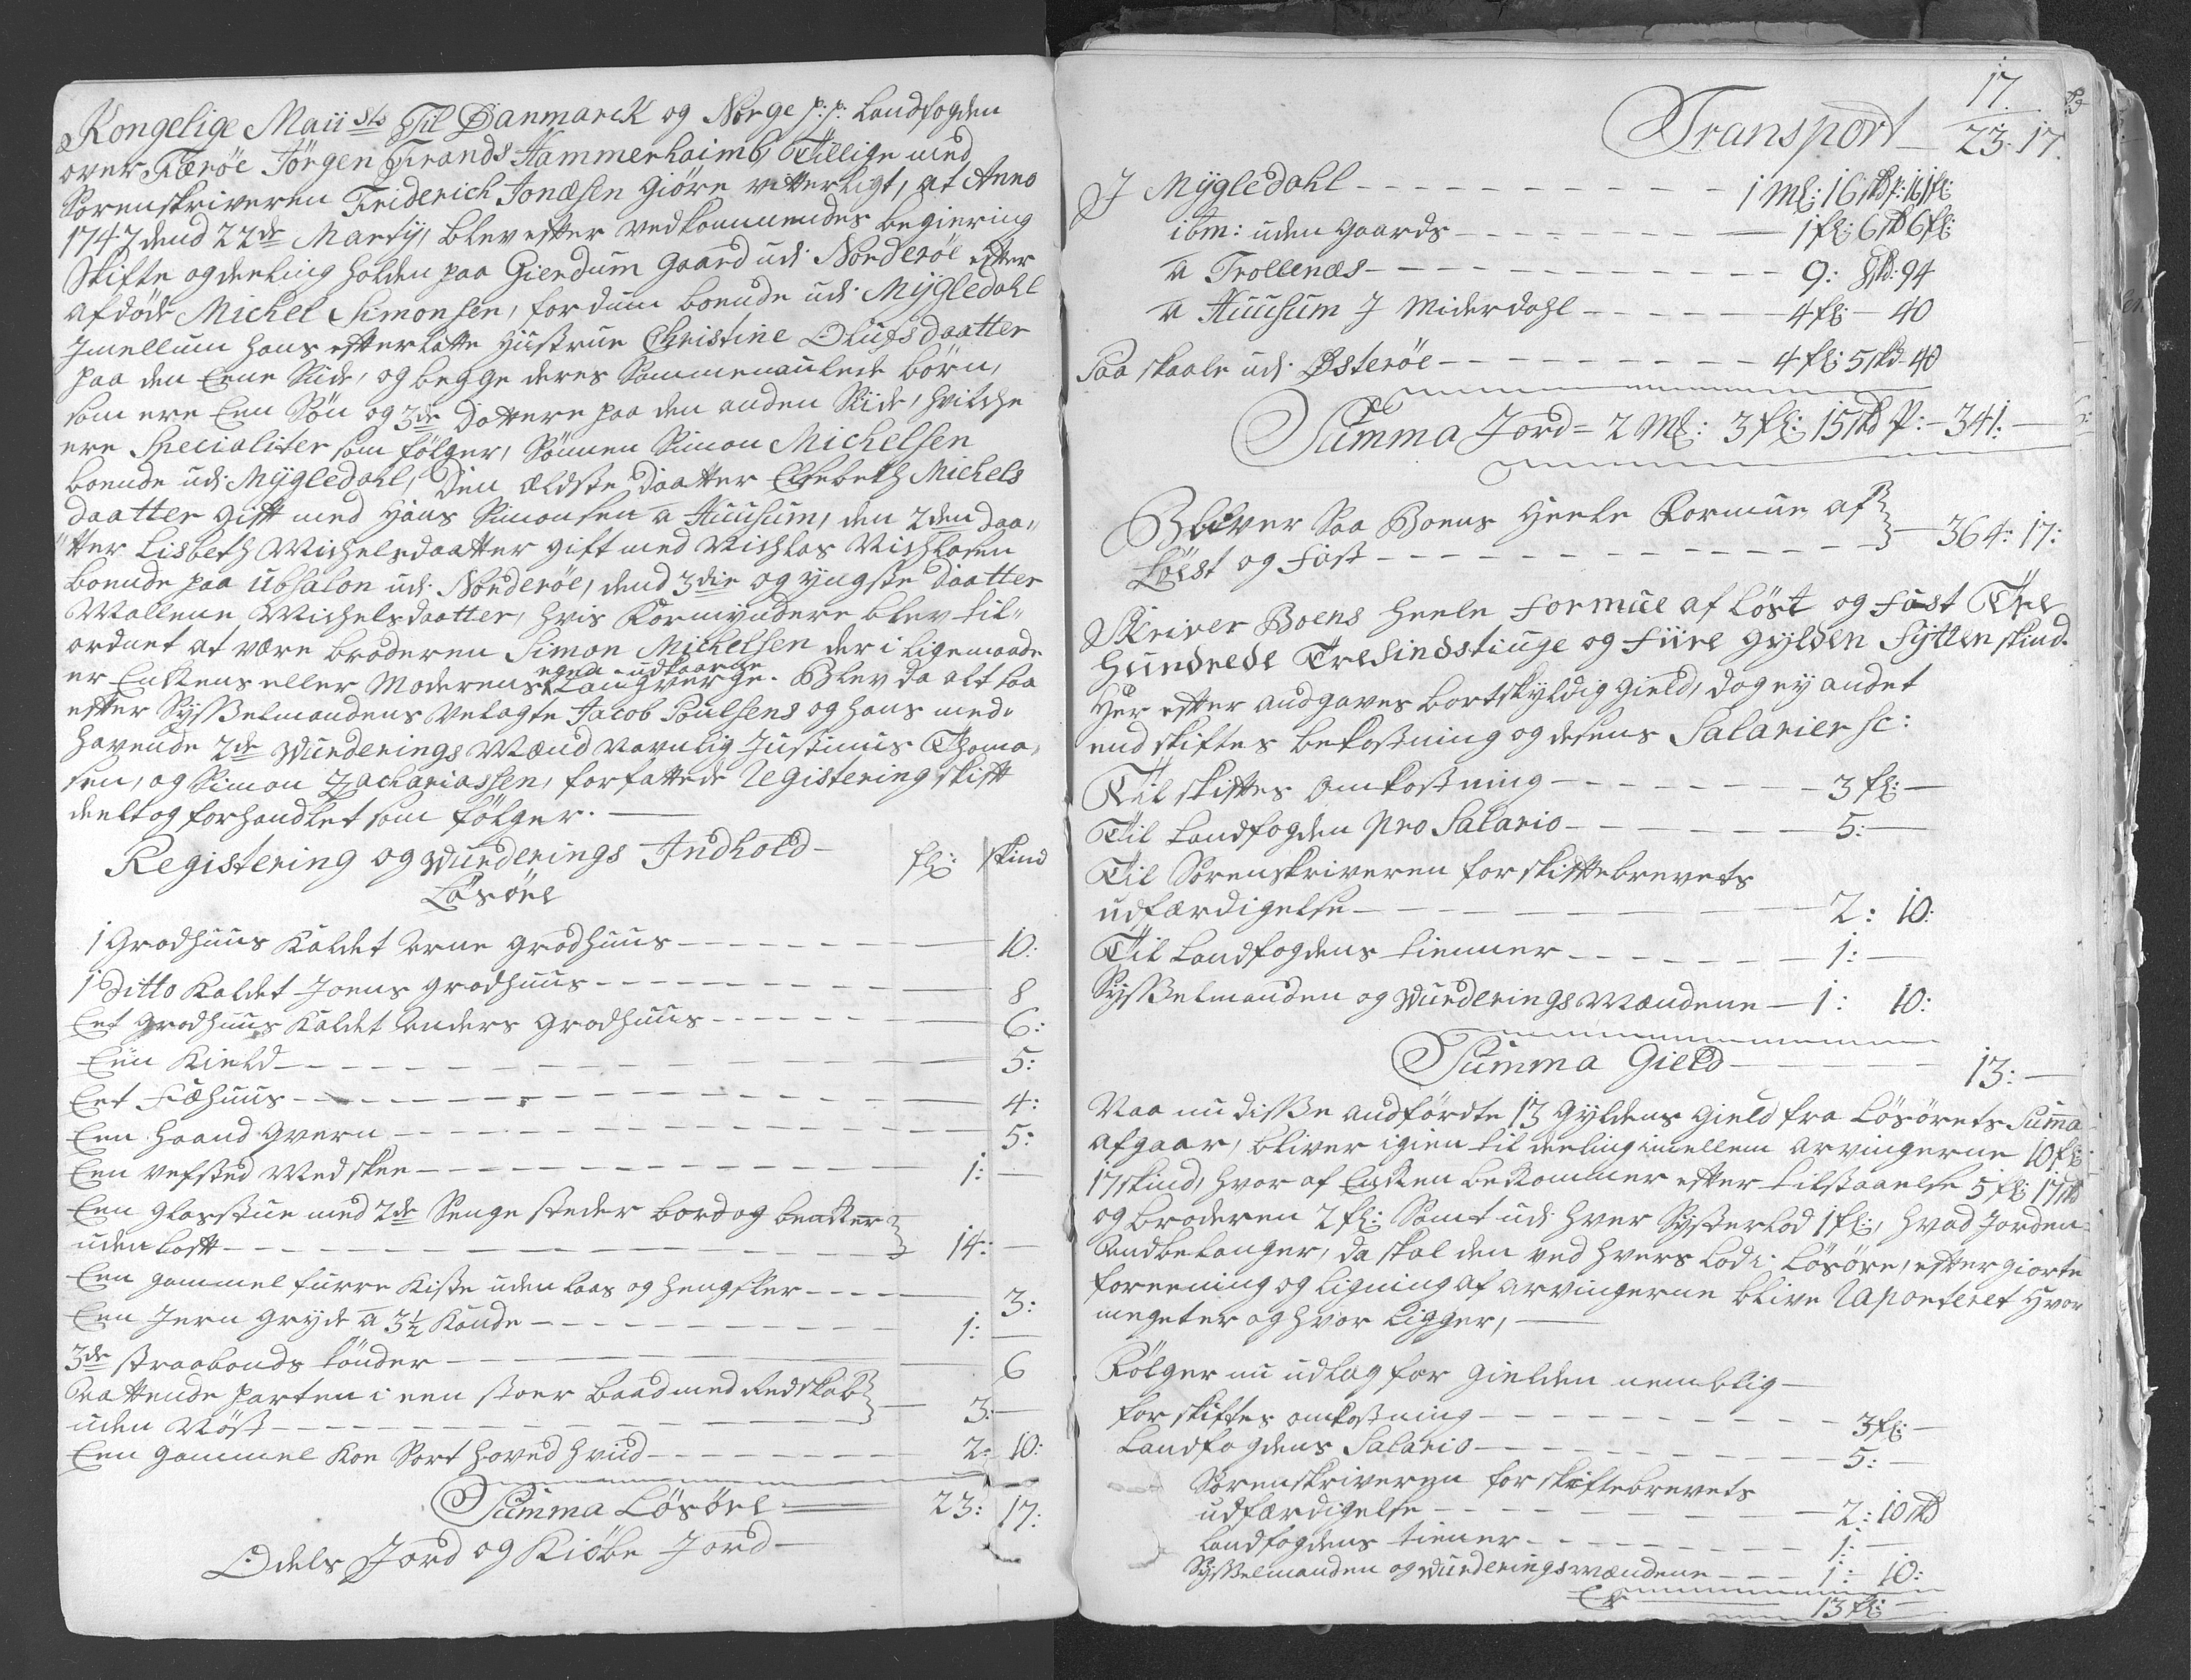 Kongelige Maiists Til Danmarck og Norge p: p: Landfogden
over Færöe Jörgen Frands Hammerhaimb, Tillige med
Sorenskriveren Friderich Jonæsen Giöre vitterligt, at Anno
1747 dend 22de Marty, blev efter vedkommendes begiering
Skifte og deeling holden paa Gierdum Gaard udi Norderöe efter
afdöde Michel Simonsen, fordum boende udi Mÿgledahl
Imellum hans efterlatte Hustrue Christine Olufsdaatter
paa den Eene Side, og begge deres Sammenaulede börn,
som ere Een Sön og 3de Dottere paa den anden Side, hvilche
ere Specialiter som fölger, Sönnen Simon Michelsen
boende udi Mÿgledahl, Den ældste Daatter Elsebeth Michels
daatter gift med Hans Simonsen a Huusum, den 2den daa„
„tter Lisbeth Michelsdaatter gift med Nichlas Nichlasen
boende paa Ubsalon udi Norderöe, dend 3die og yngste Daatter
Mallene Michelsdaatter, hvis Formyndere blev til„
ordnet at være broderen Simon Michelsen der i ligemaade
er Enkens eller Moderens egen udkaarne Laugverge. Blev da alt saa
efter Sysselmandens Velagte Jacob Poulsens og hans med„
havende 2de Wurderings Mænd Navnlig Justinus Thoma„
sen, og Simon Zachariassen, forfattede Registering skift
deelt og forhandlet som fölger.
Registering og Wurderings Indhold fl: skind
Lösöre
1 Gradhuus Kaldet Arne Gradhuus 10:
1 Ditto Kaldet Joens Gradhuus 8
Eet Gradhuus Kaldet Anders Gradhuus 6:
Een Kield 5:
Eet Fæhuus 4:
Een Haand Qvern 5:
Een Vefsted Med skee 1:
Een Glasstue med 2de Senge steder bord og bencker
uden loft 14:
Een gammel furre Kiste uden laas og Hengsler 3:
Een Jern Gryde a 3½ Kande 1:
3de straabonds tönder 6
Aattende parten i een stoer baad med Redskab
uden Nöst 3:
Een gammel Koe Sort hoved hvid 2: 10:
Summa Lösöre 23: 17:
Odels Jord og Kiöbe Jord
17.
Transport 23. 17.
I Mÿgledahl 1 Mk: 16 skd p: 161 fl:
ibm: uden Gaards 1 fl: 6 skd 6 fl:
a Trollenæs 9: skd: 94
a Huusum I Miderdahl 4 fl: 40
Paa skaale udi Østeröe 4 fl: 5 skd 40
Summa Jord = 2 Mk: 3 fl: 15 skd P: 341:
Bliver Saa Boens Heele Formue af
Löest og fast 364: 17:
Skriver Boens heele formue af löst og fast Tre
Hundrede Tresindstiuge og Fiire gylden Sytten skind
Her efter andgaves bortskyldig Gield, dog ey andet
end skiftes bekostning og desens Salarier sc:
Til skiftes Omkostning 3 fl:
Til Landfogden pro Salario 5:
Til Sorenskriveren for skiftebrevets
udfærdigelse 2: 10:
Til Landfogdens tienner 1:
Sysselmanden og Wurderings Mændene 1: 10:
Summa Gield 13:
Naar nu disse andfördte 13 Gyldens Gield fra Lösörets Suma
afgaar, bliver igien til deeling imellem arvingerne 10 fl:
17 skind, hvor af Enken bekommer efter tilstaaelse 5 fl: 17 skd
og broderen 2 fl: Samt udi hver Systerlod 1 fl:, hvad Jorden
andbelanger, da skal den ved hvers lod i Lösöre, efter giorte
foreening og ligning af arvingerne blive Raporteret hvor
meget er og hvor ligger,
Fölger nu udlag for Gielden nemblig
for skiftes omkostning 3 fl:
Landfogdens Salario 5:
Sorenskriveren for skiftebrevets
udfærdigelse 2: 10 skd
Landfogdens tiener 1:
Sysselmanden og Wurderingsmændene 1: 10:
Er 13 fl: